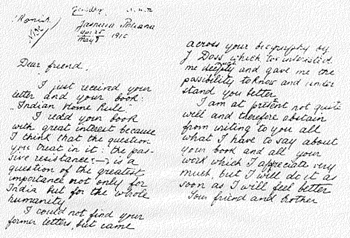 Yasnaya Poliana
May 8 1910
Dear friend.
I just received your
letter and your book
Indian Home Rule.
I read your book
with great interest because
I think that the question
you treat in it: the pas-
sive resistance:—is a
question of the greatest
importance not only for
India but for the whole
humanity.
I could not find your
former letters but came
across your biography by
J. Doss which too interested
me deeply and gave me the
possibility to know and under
stand you better.
I am at present not quite
well and therefore abstain
from writing to you all
what I have to say about
your book and all your
work which I appreciate very
much, but I will do it as
soon as I will feel better
Your friend and brother